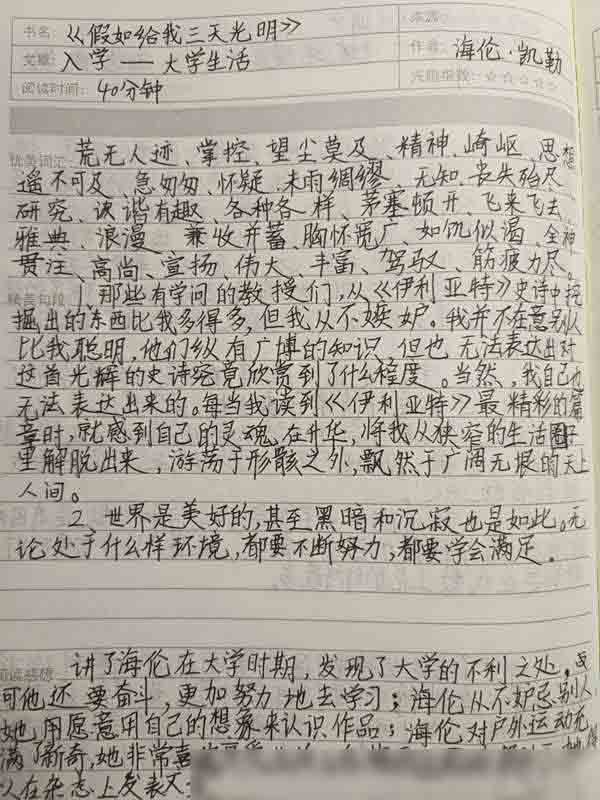 书名：《假如给我三天光明》
文章：入学——大学生活
作者：海伦·凯勒
阅读时间：40分钟
优美词汇：荒无人迹、掌控、望尘莫及、精神、崎岖、思想
遥不可及、急匆匆、怀疑、未雨绸缪、无知、丧失殆尽
研究、诙谐有趣、各种各样、茅塞顿开、飞来飞去、
雅典、浪漫、兼收并蓄、胸怀宽广、如饥似渴、全神
贯注、高尚、宣扬、伟大、丰富、驾驭、筋疲力尽。
精美句段：1、那些有学问的教授们,从《伊利亚特》史诗中挖
掘出的东西比我多得多,但我从不嫉妒。我并不在意别人
比我聪明,他们纵有广博的知识,但也无法表达出对
这首光辉的史诗究竟欣赏到了什么程度。当然,我自己也
无法表达出来的。每当我读到《伊利亚特》最精彩的篇
章时,就感到自己的灵魂在升华,将我从狭窄的生活圈子
里解脱出来,游荡于形骸之外,飘然于广阔无垠的天上
人间。
2、世界是美好的,甚至黑暗和沉寂也是如此。无
论处于什么样环境,都要不断努力,都要学会满足。
阅读感想：讲了海伦在大学时期,发现了大学的不利之处。
可他还要奋斗,更加努力地去学习；海伦从不妒忌别人
她用愿意用自己的想象来认识作品；海伦对户外运动充
满了新奇,她非常喜
以在杂志上发表文